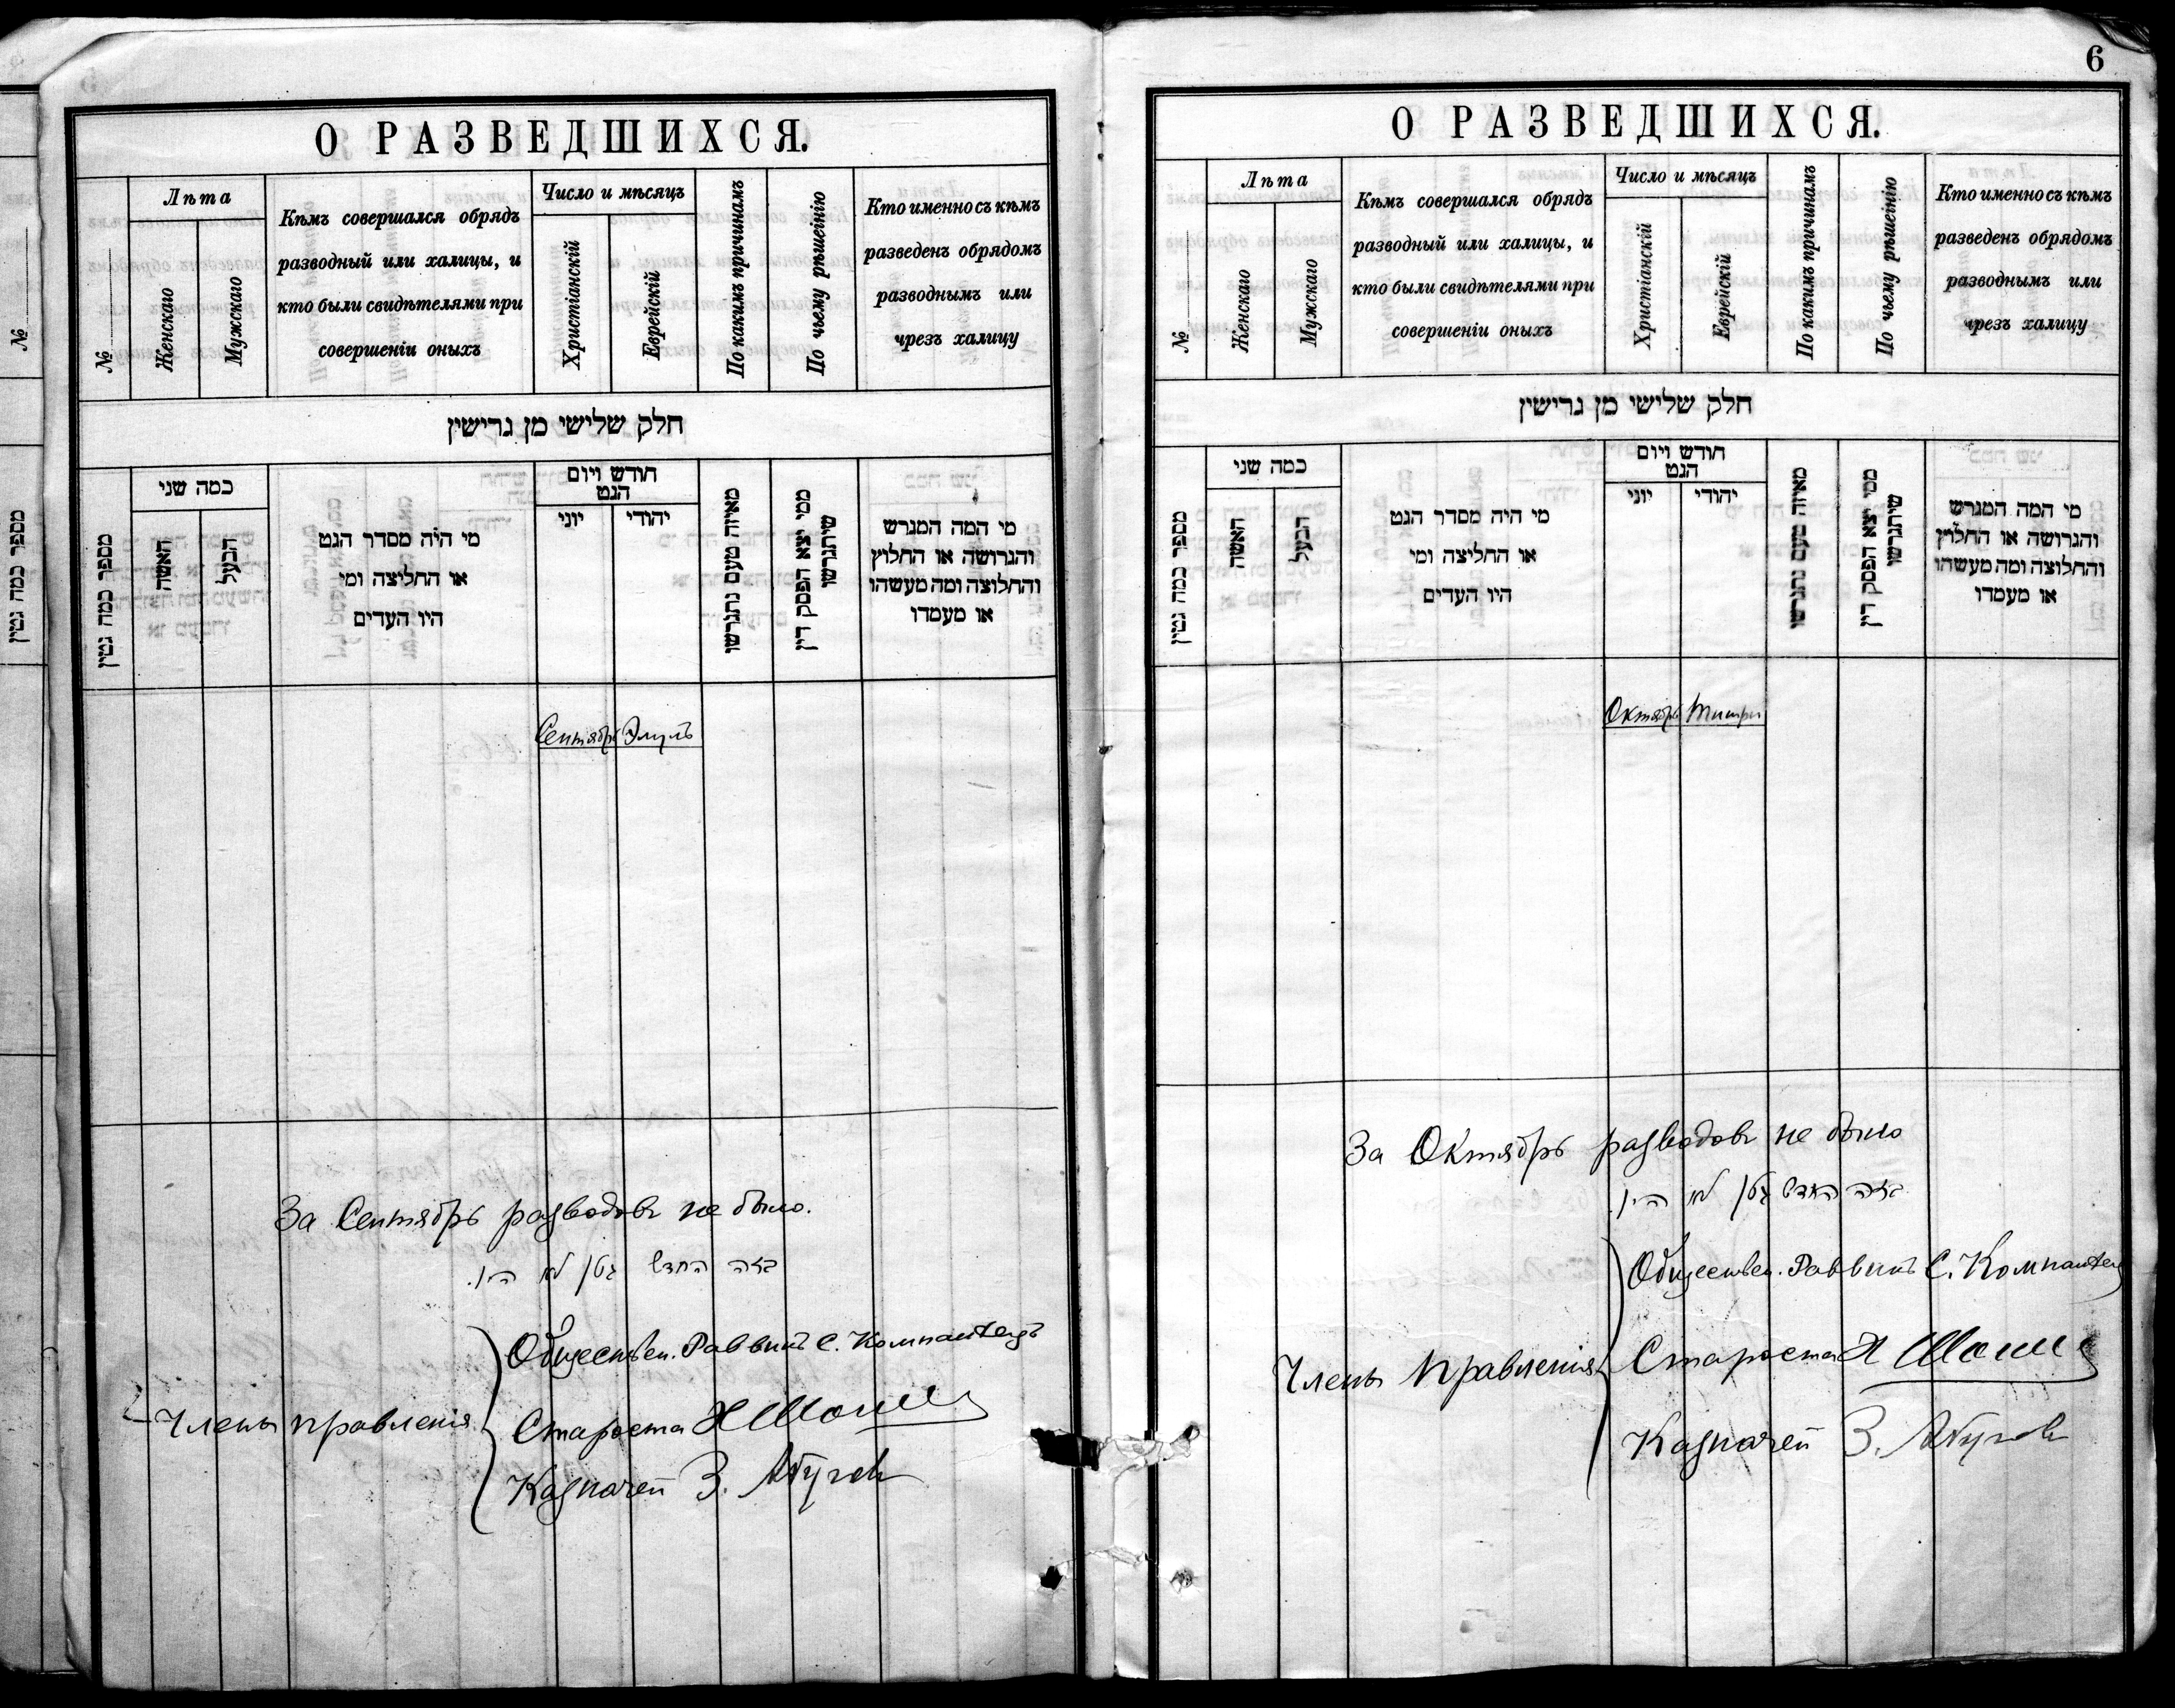 О РАЗВЕДШИХСЯ.
№
Лѣта
Женскаго
Мужскаго
Кѣмъ совершался обрядъ
разводный или халицы, и
кто были свидѣтелями при
совершеніи оныхъ
Число и мѣсяцъ
Христіанскій
Еврейскій
По какимъ причинамъ
По чьему рѣшенію
Кто именно съ кѣмъ
разведенъ обрядомъ
разводнымъ или
чрезъ халицу
חלק שלישי מן גרישין
מספר כמה גטין
כמה שני
האשה
הבעל
מי היה מסדר הגט
או החליצה ומי
היו העדים
חודש ויום
הגט
יוני
יהודי
מאיזה טעם נתגרשו
ממי יצא הפסק דין
שיתגרשו
מי המה המגרש
והגרושה או החלוץ
והחלוצה ומה מעשהו
או מעמדו
Сентябрь Элулъ
За Сентябрь разводовъ не было.
בזה החדש גטין לא היו.
Обществен. Раввинъ С. Компанеецъ
Члены правленія
Староста
Казначей З.
6
О РАЗВЕДШИХСЯ.
№
Лѣта
Женскаго
Мужскаго
Кѣмъ совершался обрядъ
разводный или халицы, и
кто были свидѣтелями при
совершеніи оныхъ
Число и мѣсяцъ
Христіанскій
Еврейскій
По какимъ причинамъ
По чьему рѣшенію
Кто именно съ кѣмъ
разведенъ обрядомъ
разводнымъ или
чрезъ халицу
חלק שלישי מן גרישין
מספר כמה גטין
כמה שני
האשה
הבעל
מי היה מסדר הגט
או החליצה ומי
היו העדים
חודש ויום
הגט
יוני
יהודי
מאיזה טעם נתגרשו
ממי יצא הפסק דין
שיתגרשו
מי המה המגרש
והגרושה או החלוץ
והחלוצה ומה מעשהו
או מעמדו
Октябрь Тишри
За Октябрь разводовъ не было
בזה החדש גטין לא היו.
Обществен. Раввинъ С. Компанеец
Члены Правленія
Староста
Казначей З.
№
מספר כמה גטין